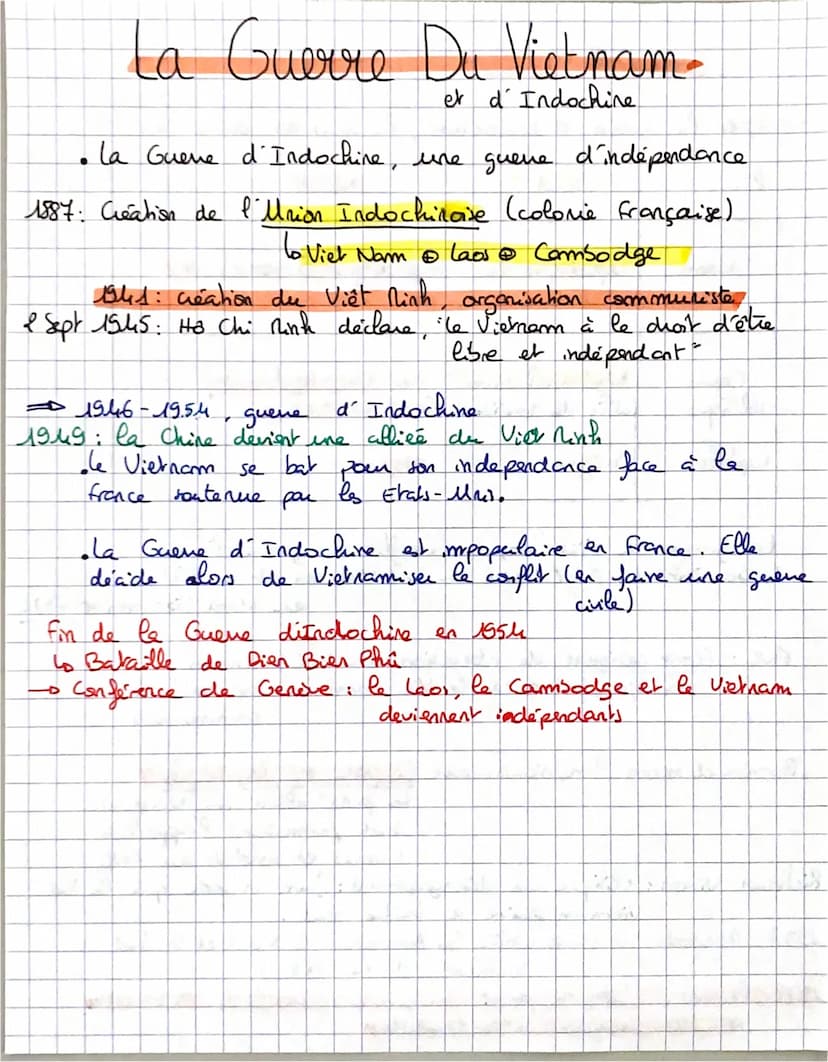 La Guerre Du Vietnam
et d'Indochine
• La Guerre d'Indochine, une guerre d'indépendance
1887: Création de l'Union Indochinoise (colonie française)
↳ Viet Nam ⊕ Laos ⊕ Cambodge
1941: création du Viêt Minh, organisation communiste,
2 Sept 1945: Hô Chi Minh déclare, "le Vietnam à le droit d'être
libre et indépendant"
⇒ 1946-1954, guerre d'Indochine
1949: la Chine devient une alliée du Viet Minh
• le Vietnam se bat pour son indépendance face à la
france soutenue par les Etats-Unis.
• La Guerre d'Indochine est impopulaire en France. Elle
décide alors de Vietnamiser le conflit (en faire une guerre
civile)
Fin de la Guerre d'Indochine en 1954
↳ Bataille de Dien Bien Phû
→ Conférence de Genève : le Laos, le Cambodge et le Vietnam
deviennent indépendants